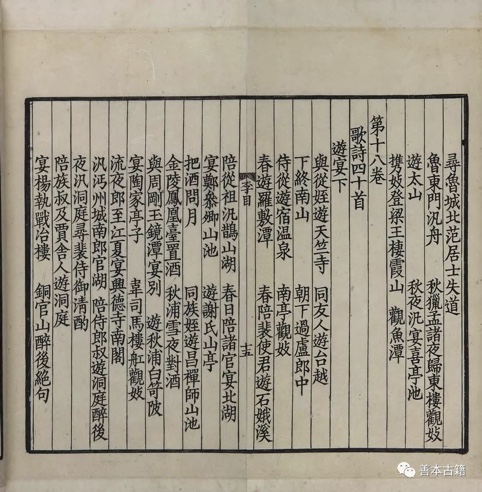 尋魯城北范居士失道
魯東門汎舟　秋獵孟諸夜歸東樓觀妓
遊太山　秋夜汎宴喜亭池
携妓登梁王棲霞山　觀魚潭
第十八卷
歌詩四十首
遊宴下
與從姪遊天竺寺　同友人遊台越
下終南山　朝下過盧郎中
侍從遊宿温泉　南亭觀妓
春遊羅敷潭　春陪裴使君遊石娥溪
李目　十五
陪從祖汎鵲山湖　春日陪諸官宴北湖
宴鄭叅卿山池　遊謝氏山亭
把酒問月　同族姪遊昌禪師山池
金陵鳳凰臺置酒　秋浦雪夜對酒
與周剛玉鏡潭宴別　遊秋浦白笴陂
宴陶家亭子　韋司馬樓船觀妓
流夜郎至江夏宴興德寺南閣
汎沔州城南郎官湖　陪侍郎叔遊洞庭醉後
夜汎洞庭尋裴侍御清酌
陪族叔及賈舍人遊洞庭
宴楊執戟冶樓　銅官山醉後絶句
善本古籍